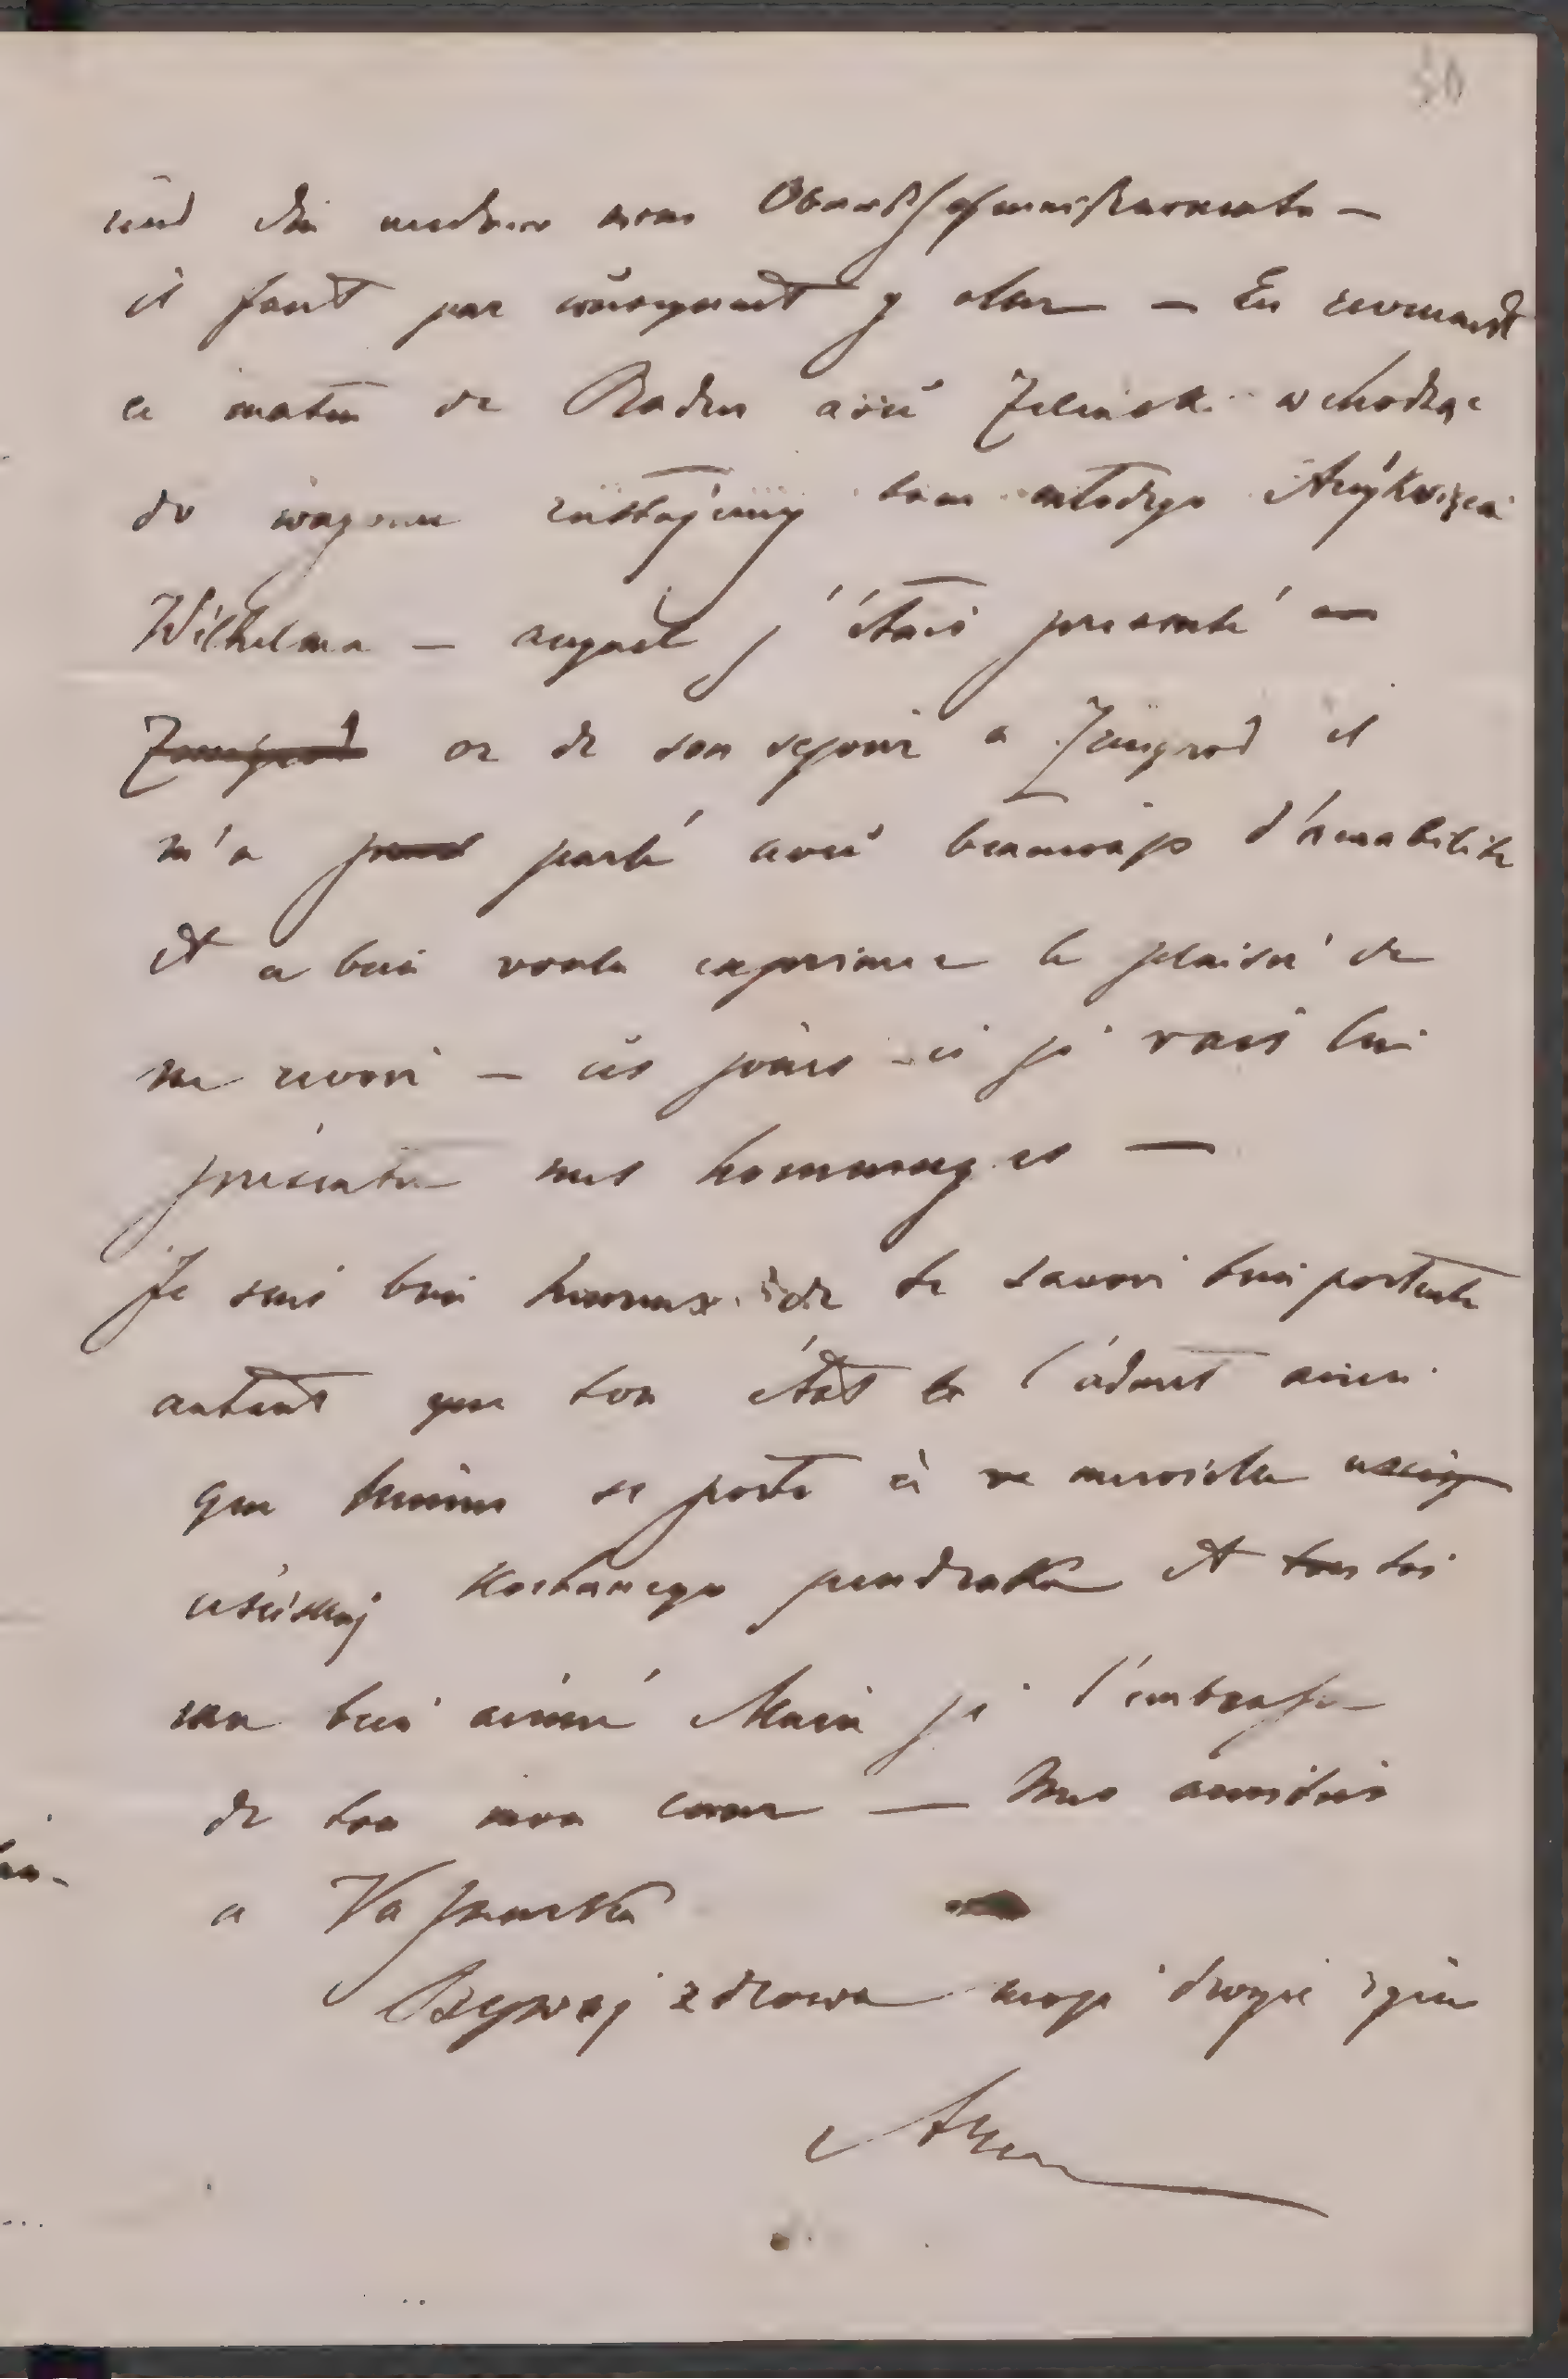 50
und die anderen vom Obersthofmeisteramte —
il faut par conséquent y aller — En revenant
ce matin de Baden avec Zelinski wchodząc
do wagonu zastajemy tam młodego Arcyksięcia
Wilhelma — auquel j'étais presenté —
or de son sejour a Zmigrod il
m'a parlé avec beaucoup d'amabilite
et a bien voulu exprimer le plaisir de
me revoir — ces jours-ci je vais lui
présenter mes hommages —
Je suis bien heureux de te savoir bien portante
autant que ton état te l'admet ainsi
que se porte à merveille
uściskaj kochanego pendraka et toi
ma bien aimée je t'embrasse
de tou mon coeur — Mes amitiés
a
Bywaj zdrowa moje drogie życie